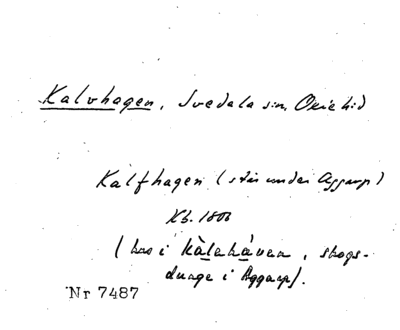 Kalvhagen, Svedala sn, Oxie hd
Kalfhagen (står under Aggarp)
Kb. 1806
(hos i kàlaháven, skogs-
dunge i Aggarp).
Nr 7487